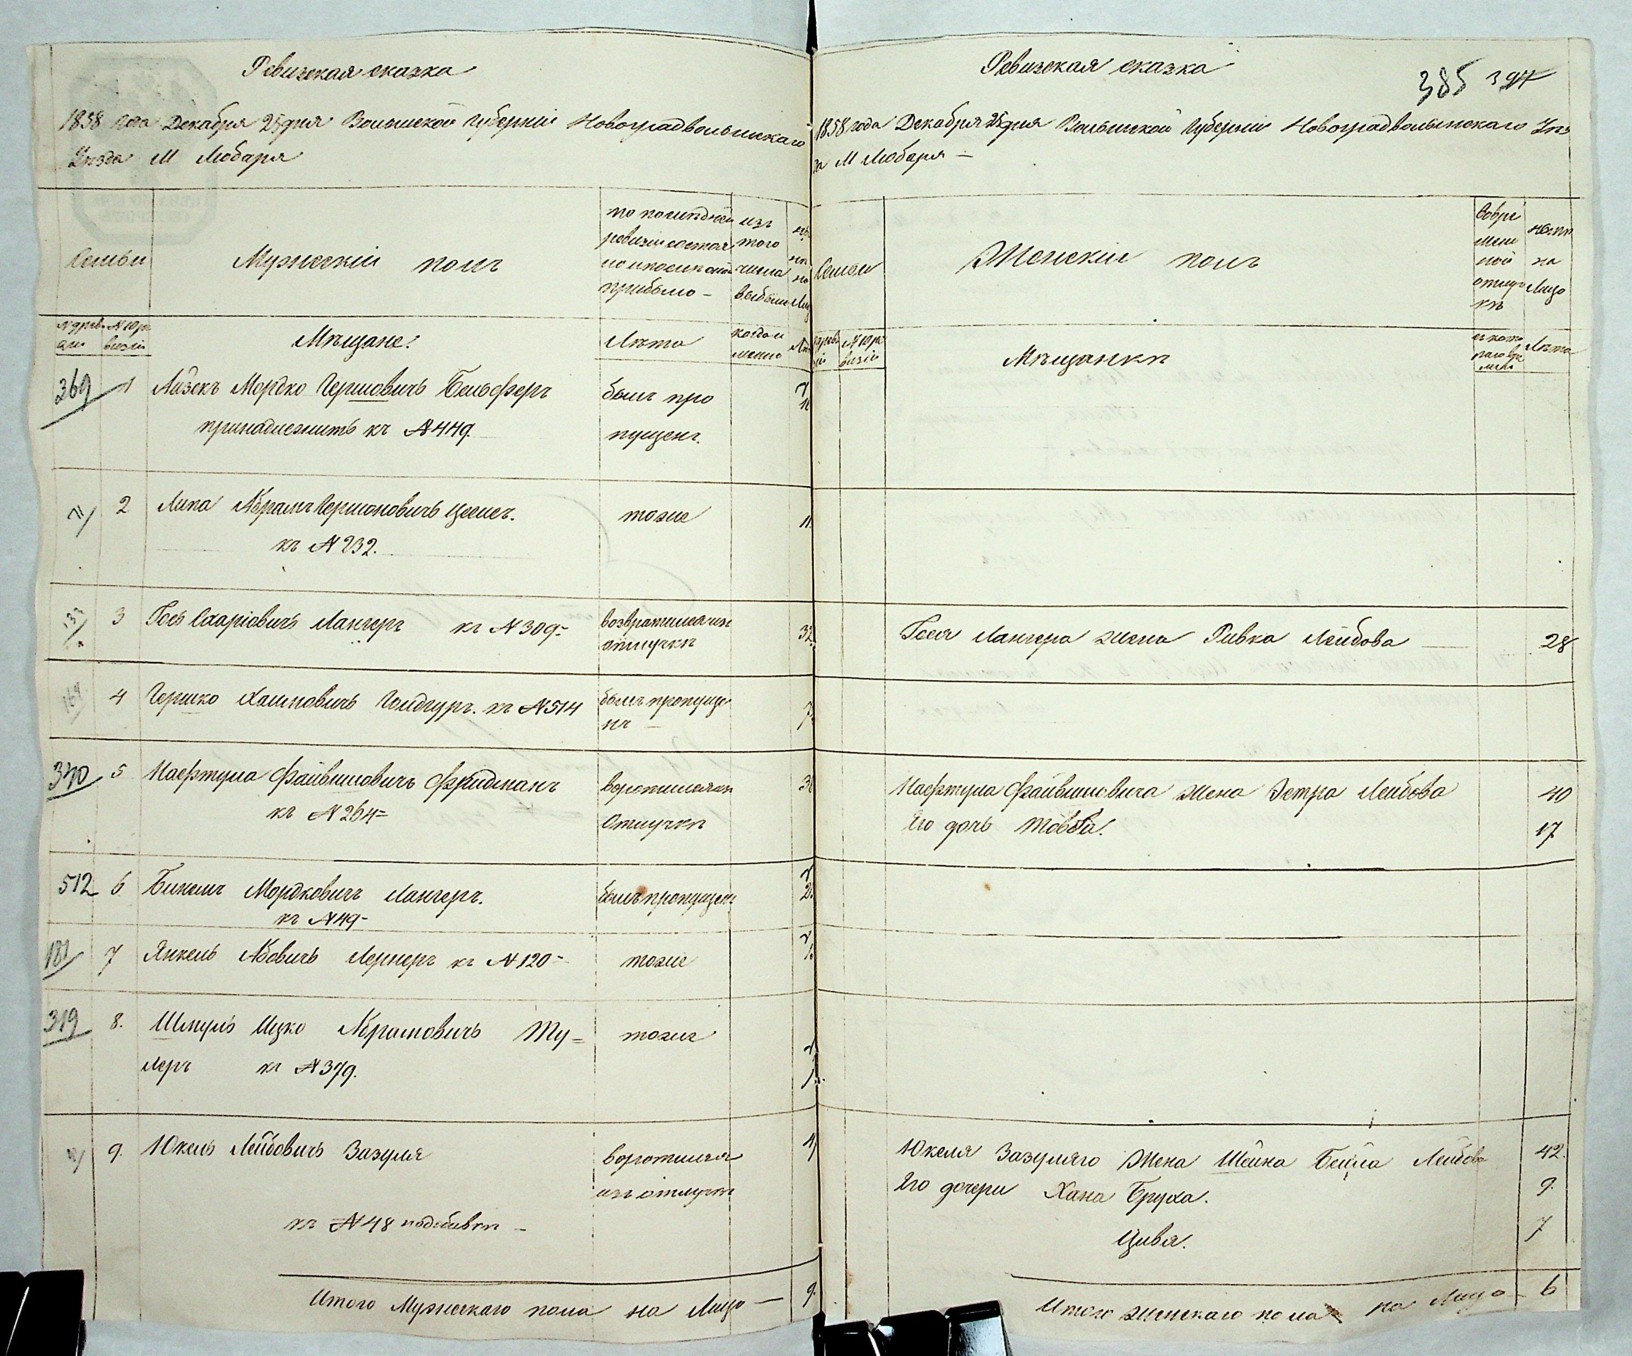 Ревизская сказка
1858 года Декабря 25 дня Волынской Губерніи Новоградволынскаго
Уезда М Любаря
Семьи
Мужескій полъ
по последней
ревизіи состоя
ло и после оной
прибыло
изъ
того
числа
выбыло
Мещане.
Лета
когда и
именно
369 1 Айзекъ Мордко Гершовичъ Бельферъ
принадлежитъ къ №449.
былъ про
пущенъ.
2 Липа Абрамъ Гершоновичъ
къ №232.
тоже
11
3 Госъ Лангеръ къ №309
возвратился изъ
отлучки
32
4 Гершко Хаимовичъ къ №514
былъ пропуще
нъ
5 Нафтула Файвишовичъ Фридманъ
къ №264
воротился изъ
отлучки
512 6 Мордковичъ Лангеръ.
къ №49
былъ пропущенъ
181 7 Янкель Абовичъ Лернеръ къ №120
тоже
319 8. Шмуль Ицко Абрамовичъ Ту=
леръ къ №379.
тоже
9. Юкель Лейбовичъ Зазуля
воротился
изъ отлучки
къ №48
Итого Мужескаго пола на Лицо — 9
Ревизская сказка
385
1858 года Декабря 25 дня Волынской Губерніи Новоградволынскаго Уез
да М Любаря
Семьи
Женскій полъ
Во вре
мен
ной
отлуч
ке
налицо
Мещанки
Лета
Лангера жена Ривка Лейбова 28
Нафтула Файвишовича жена Эстра Лейбова 40
Его дочь Товба. 17
Юкеля Зазуляго Жена Шейна Бейла Лейбова 42.
Его дочери Хана Бруха. 9.
Цивя. 7
Итого женскаго пола на Лицо 6